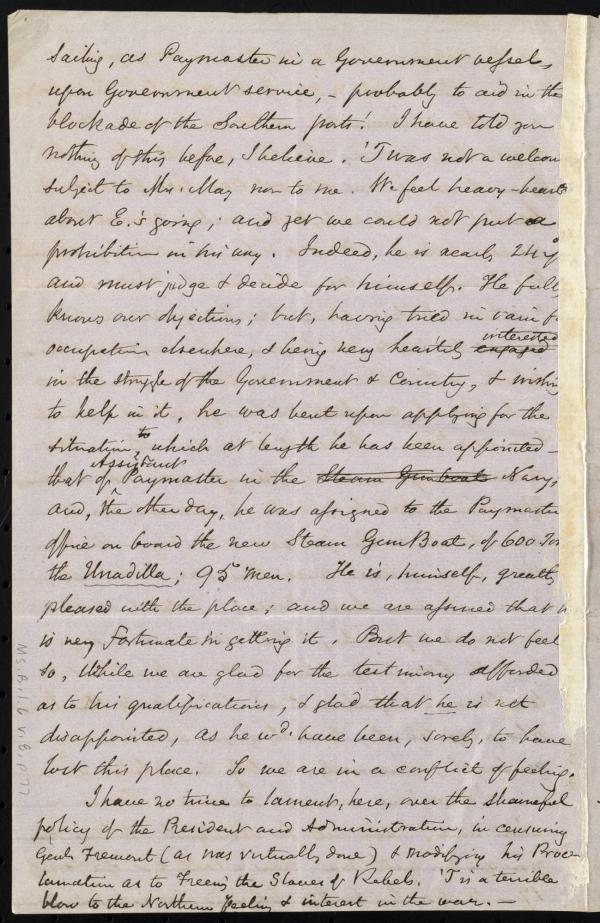 sailing, as Paymaster in a Government vessel,
upon Government service, – probably to aid in the
blockade of the Southern ports! I have told you
nothing of this before, I believe. 'T was not a welcom
subject to Mrs. May nor to me. We feel heavy-heart
about E.'s going; and yet we could not put a
prohibition in his way. Indeed, he is nearly 24 y
and must judge & decide for himself. He full
knows our objections; but, having tried in vain f
occupation elsewhere, & being very heartily engaged interested
in the struggle of the Government & Country, & wishin
to help in it, he was bent upon applying for the
situation, to which at length he has been appointed –
that of Assistant Paymaster in the Steam Gunboat Navy,
and, the other day, he was assigned to the Paymaster
office on board the new Steam Gun Boat, of 600 Ton
the Unadilla; 95 men. He is, himself, greatly
pleased with the place; and we are assured that h
is very fortunate in getting it. But we do not feel
so, while we are glad for the testimony afforded
as to his qualifications, & glad that he is not
disappointed, as he wd. have been, sorely, to have
lost this place. So we are in a conflict of feeling.
I have no time to lament, here, over the shameful
policy of the President and Administration, in censuring
Genl. Fremont (as was virtually done) & modifying his Proc
lamation as to Freeing the Slaves of Rebels. 'T is a terrible
blow to the Northern feeling & interest in the war. –
Ms. B. 1. 6 v. 8. p 77